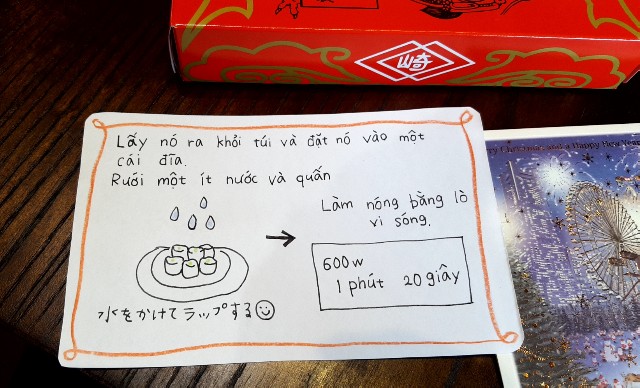 崎
Lấy nó ra khỏi túi và đặt nó vào một
cái đĩa.
Rưới một ít nước và quấn
Làm nóng bằng lò
vi sóng.
600w
1 phút 20 giây
水をかけてラップする
Christmas and a Happy New Year